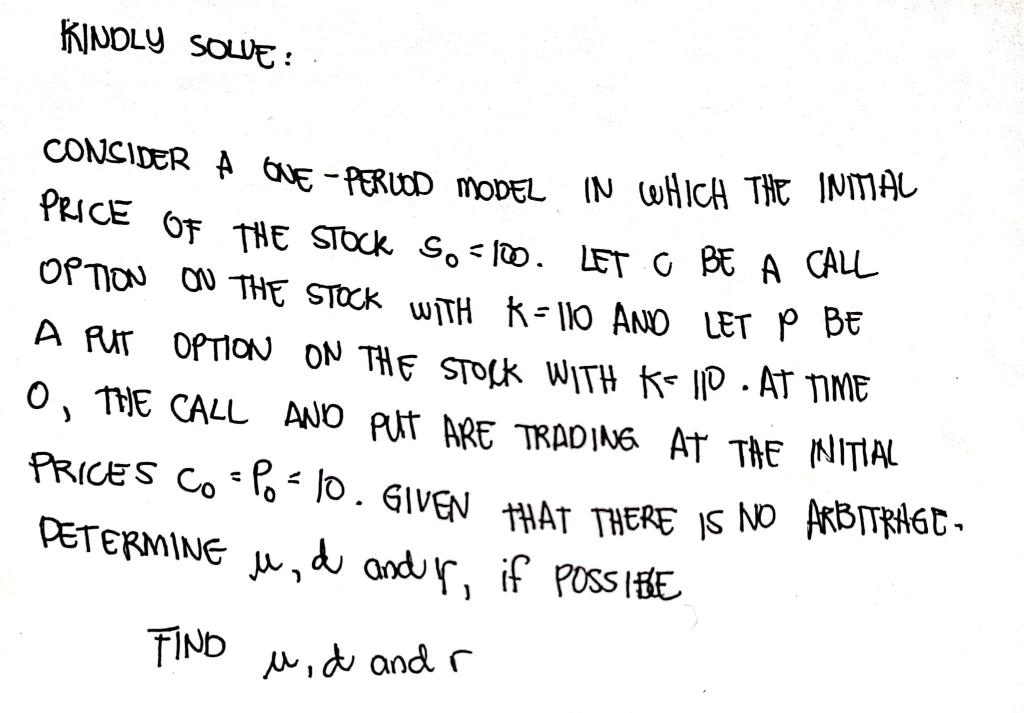 KINDLY SOLVE:
CONSIDER A ONE-PERIOD MODEL IN WHICH THE INITIAL
PRICE OF THE STOCK S₀ = 100. LET C BE A CALL
OPTION ON THE STOCK WITH K = 110 AND LET P BE
A PUT OPTION ON THE STOCK WITH K = 110. AT TIME
0, THE CALL AND PUT ARE TRADING AT THE INITIAL
PRICES C₀ = P₀ = 10. GIVEN THAT THERE IS NO ARBITRAGE.
DETERMINE u, d and r, if POSSIBLE
FIND u, d and r